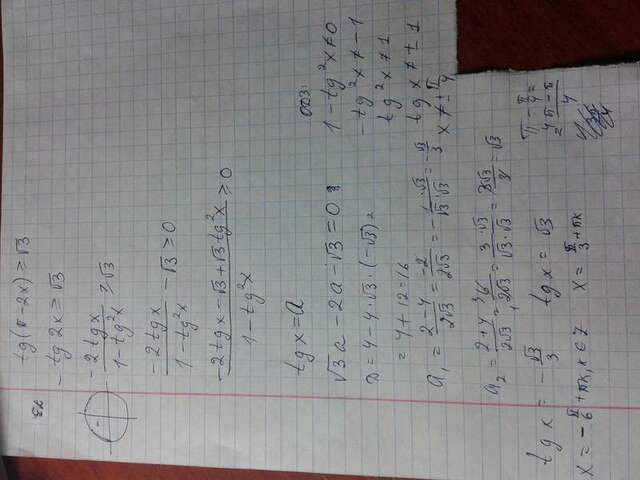 23
tg(π-2x) ≥ √3
-tg2x ≥ √3
-2tgx / 1-tg²x ≥ √3
-2tgx / 1-tg²x - √3 ≥ 0
-2tgx - √3 + √3tg²x / 1-tg²x ≥ 0
tgx = a
√3a² - 2a - √3 = 0
D = 4 - 4·√3·(-√3) =
= 4 + 12 = 16
a₁ = 2-4 / 2√3 = -2 / 2√3 = -1·√3 / √3·√3 = -√3 / 3
a₂ = 2+4 / 2√3 = 6 / 2√3 = 3·√3 / √3·√3 = 3√3 / 3 = √3
tgx = -√3 / 3 tgx = √3
x = -π/6 + πk, k ∈ Z x = π/3 + πk
ОДЗ:
1-tg²x ≠ 0
-tg²x ≠ -1
tg²x ≠ 1
tgx ≠ ± 1
x ≠ ± π/4
π - π/4 =
= 4π-π / 4